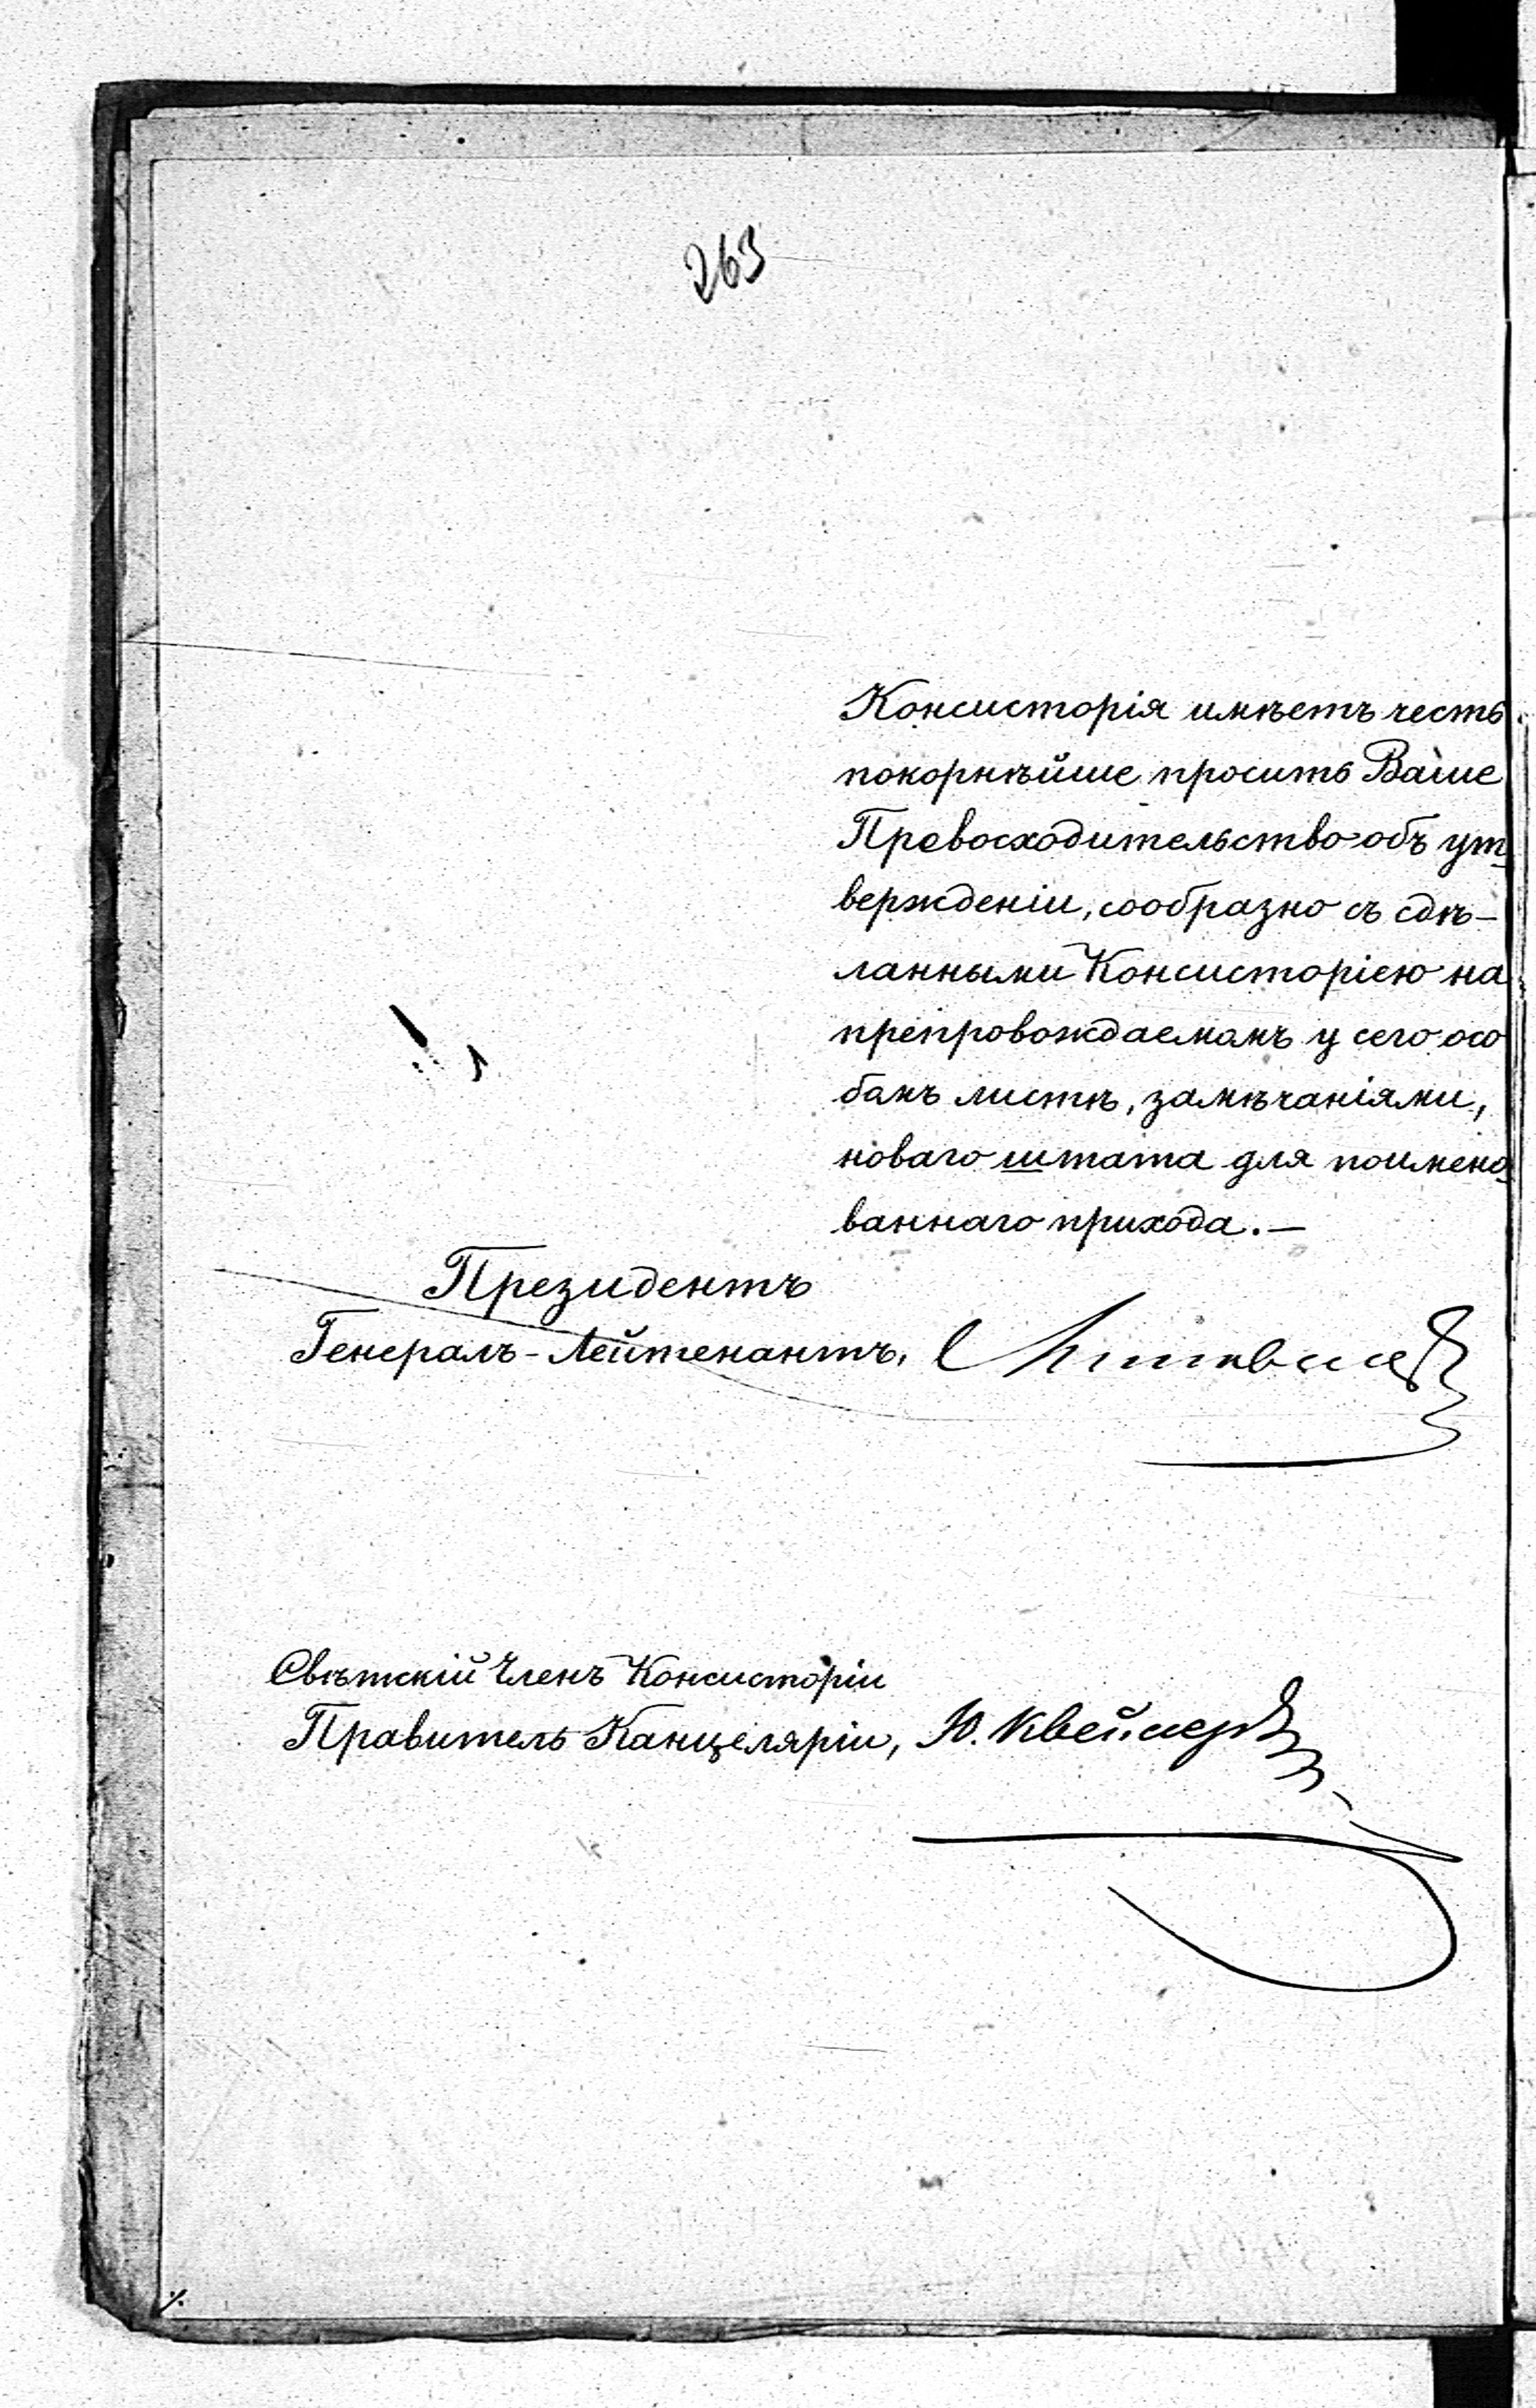 263
Консисторія имѣетъ честь
покорнѣйше просить Ваше
Превосходительство объ ут
вержденіи, сообразно съ сдѣ-
ланными Консисторіею на
препровождаемомъ у сего осо
бомъ листѣ, замѣчаніями,
новаго штата для поимено
ваннаго прихода.—
Президентъ
Генералъ-Лейтенантъ,
Свѣтскій Членъ Консисторіи
Правитель Канцеляріи, Ю.